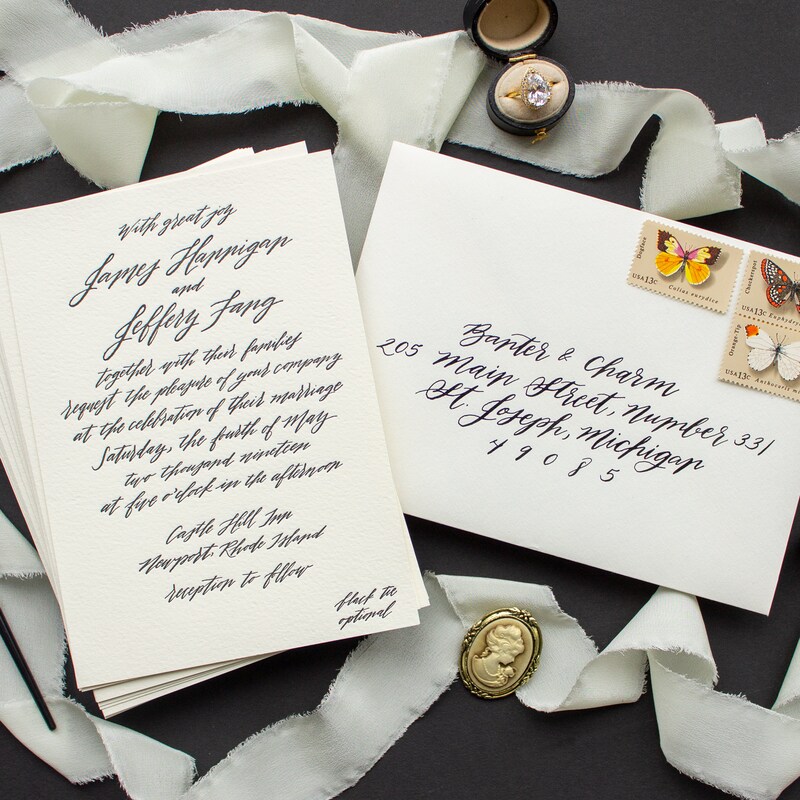 With great joy
James Hannigan
and
Jeffery Fang
together with their families
request the pleasure of your company
at the celebration of their marriage
Saturday, the fourth of May
two thousand nineteen
at five o'clock in the afternoon
Castle Hill Inn
Newport, Rhode Island
reception to fllow
black tie
optional
Banter & Charm
205 Main Street, Number 331
St. Joseph, Michigan
49085
Dogface
USA 13c
Colias eurydice
Checkerspot
USA 13c
Euphydry
Orange-Tip
USA 13c
Anthocaris m